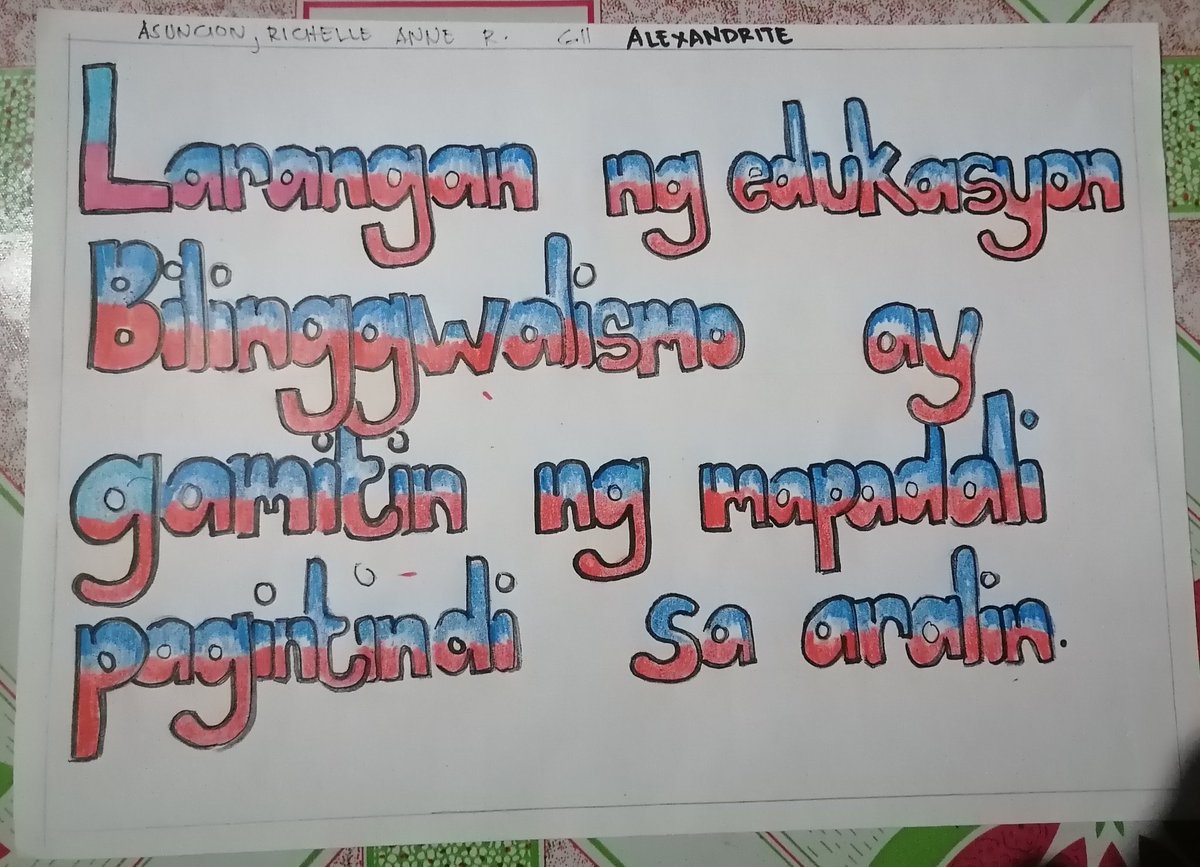 ASUNCION, RICHELLE ANNE R. G.11 ALEXANDRITE
Larangan ng edukasyon
Bilinggwalismo ay
gamitin ng mapadali
pagintindi sa aralin.